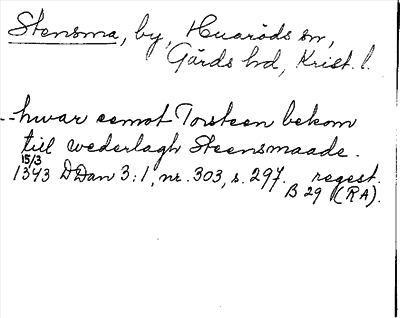 Stensma, by, Huaröds sn,
Gärds hd, Krist. l.
--hwar eemot Torsteen bekom
till wederlagh Steensmaade.
15/3
1343 DDan 3:1, nr. 303, s. 297. regest.
B 29 (RA).